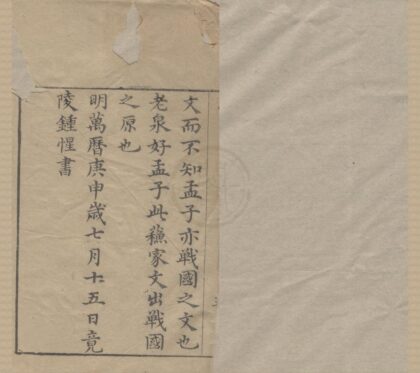 文而不知孟子亦戰國之文也
老泉好孟子此蘓家文出戰國
之原也
明萬曆庚申歳七月十五日竟
陵鍾惺書